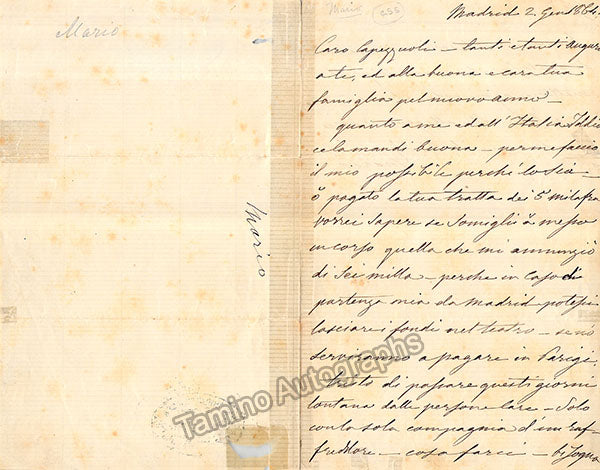 Mario
Mario
655
Madrid 2. Gen 1864.
Caro Capezzuoli – tanti e tanti auguri
a te, ed alla buona e cara tua
famiglia pel nuovo anno –
quanto a me ed all'Italia Iddio
ce la mandi buona – per me faccio
il mio possibile perché lo sia –
ò pagato la tua tratta dei 5 mila fra
vorrei sapere se Semigli à messo
in corso quella che mi annunziò
di sei milla – perche in caso di
partenza mia da Madrid potessi
lasciare i fondi nel teatro – se nò
serviranno a pagare in Parigi
tristo di passare questi giorni
lontana dalle persone care – Solo
con la sola compagnia d'un raf
freddore – cosa farci – bisogna
Mario
Tamino Autographs